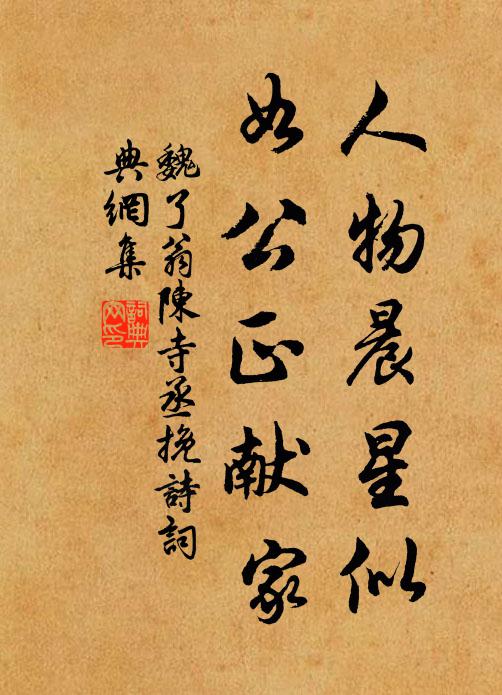 人物晨星似
如公正献家
魏了翁陳寺丞挽詩詞
典網集
詞典网印